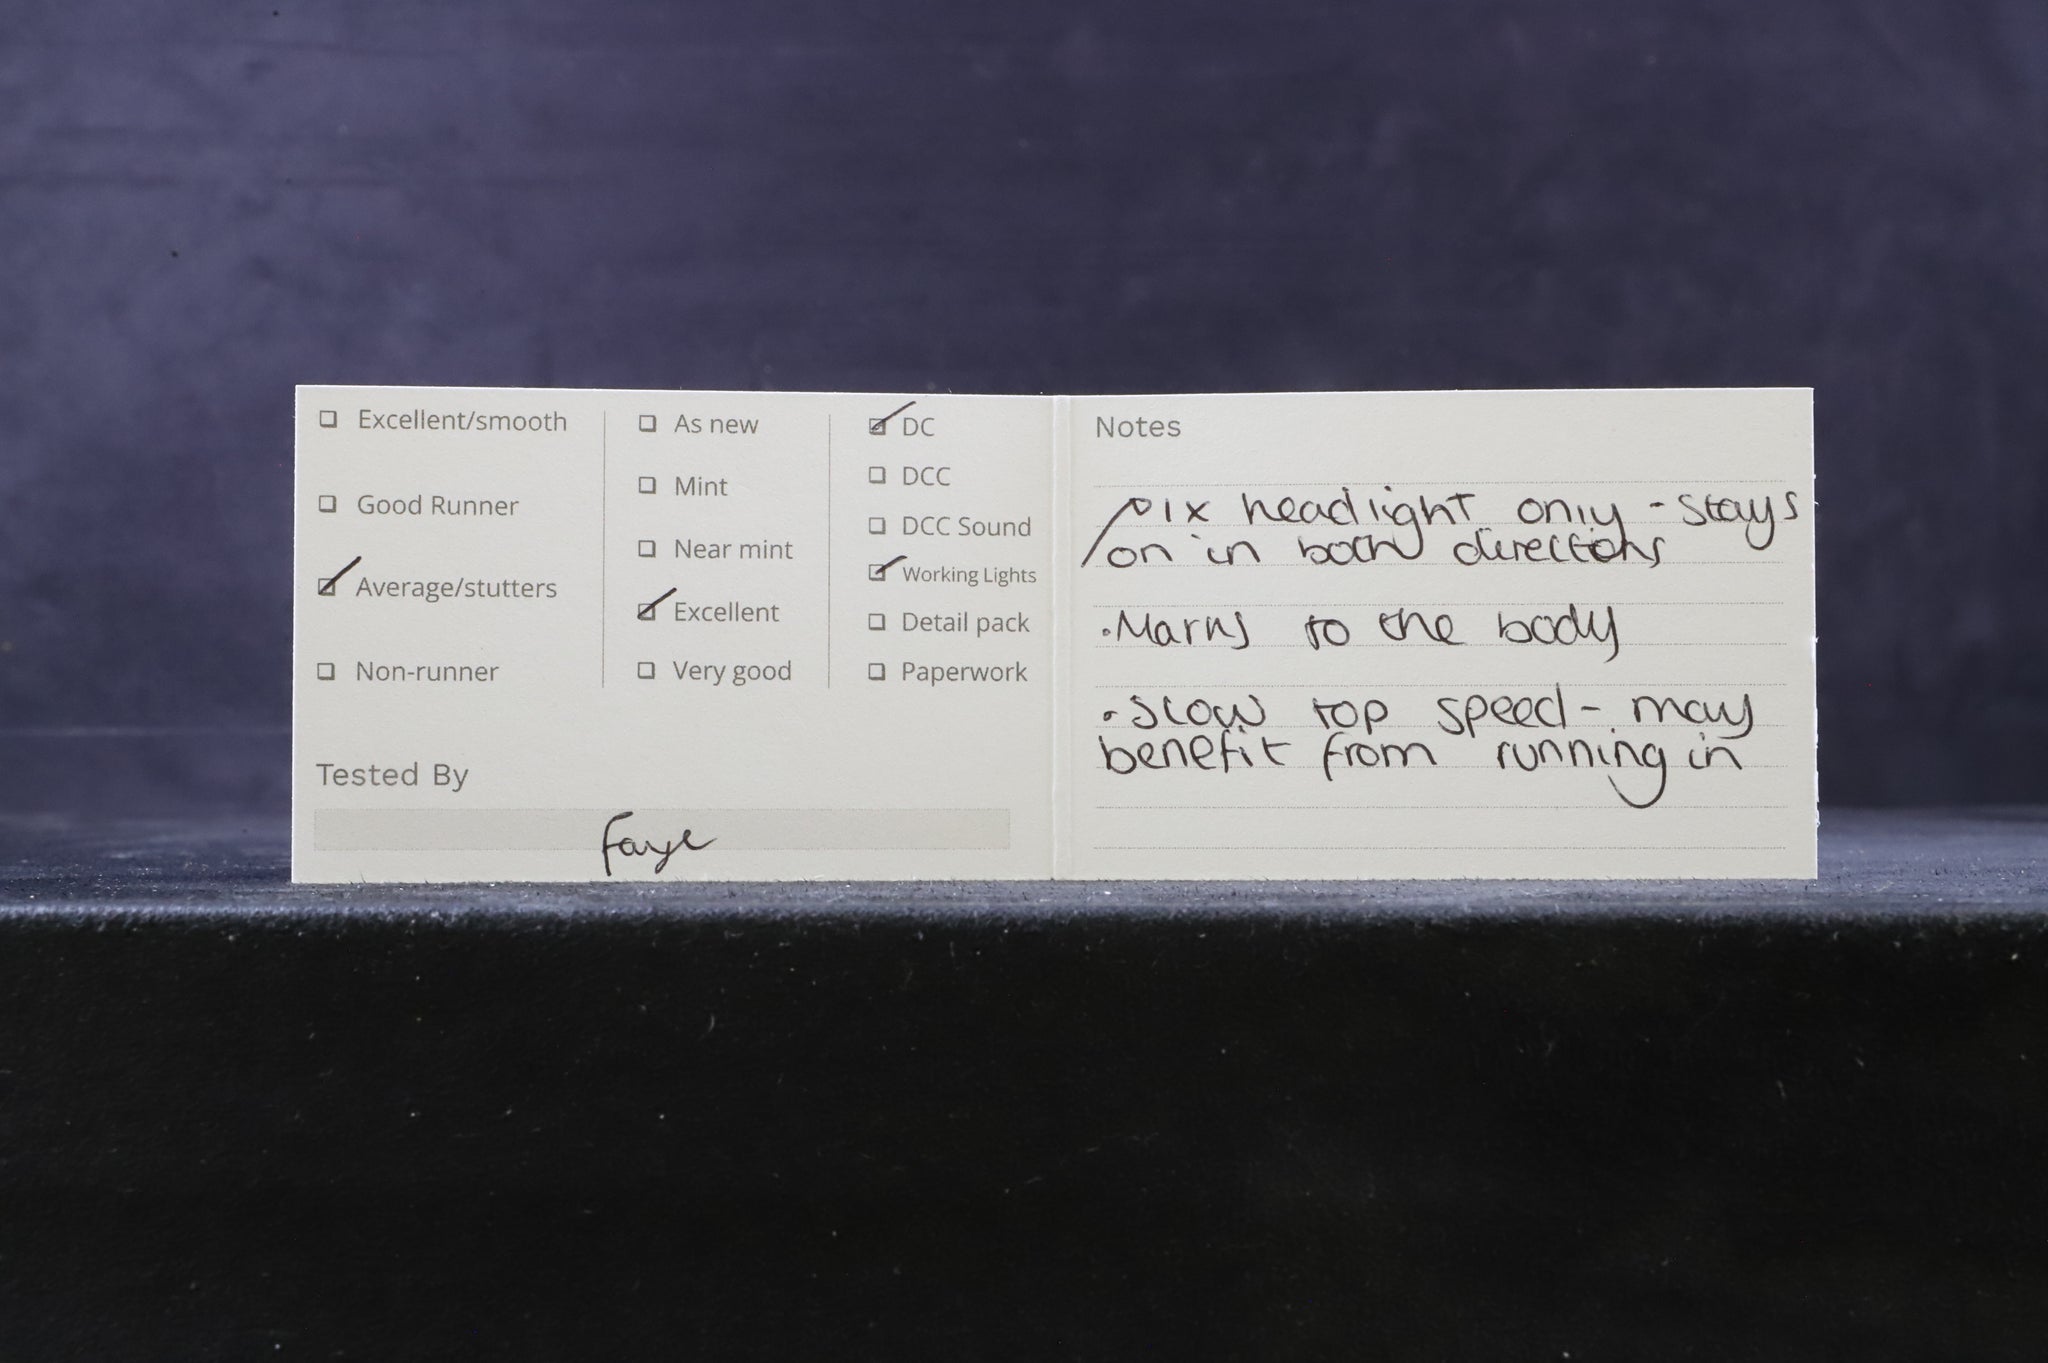 Excellent/smooth
Good Runner
Average/stutters
Non-runner
As new
Mint
Near mint
Excellent
Very good
DC
DCC
DCC Sound
Working Lights
Detail pack
Paperwork
Tested By
Faye
Notes
1x headlight only - stays
on in both directions
• Marks to the body
• Slow top speed - may
benefit from running in